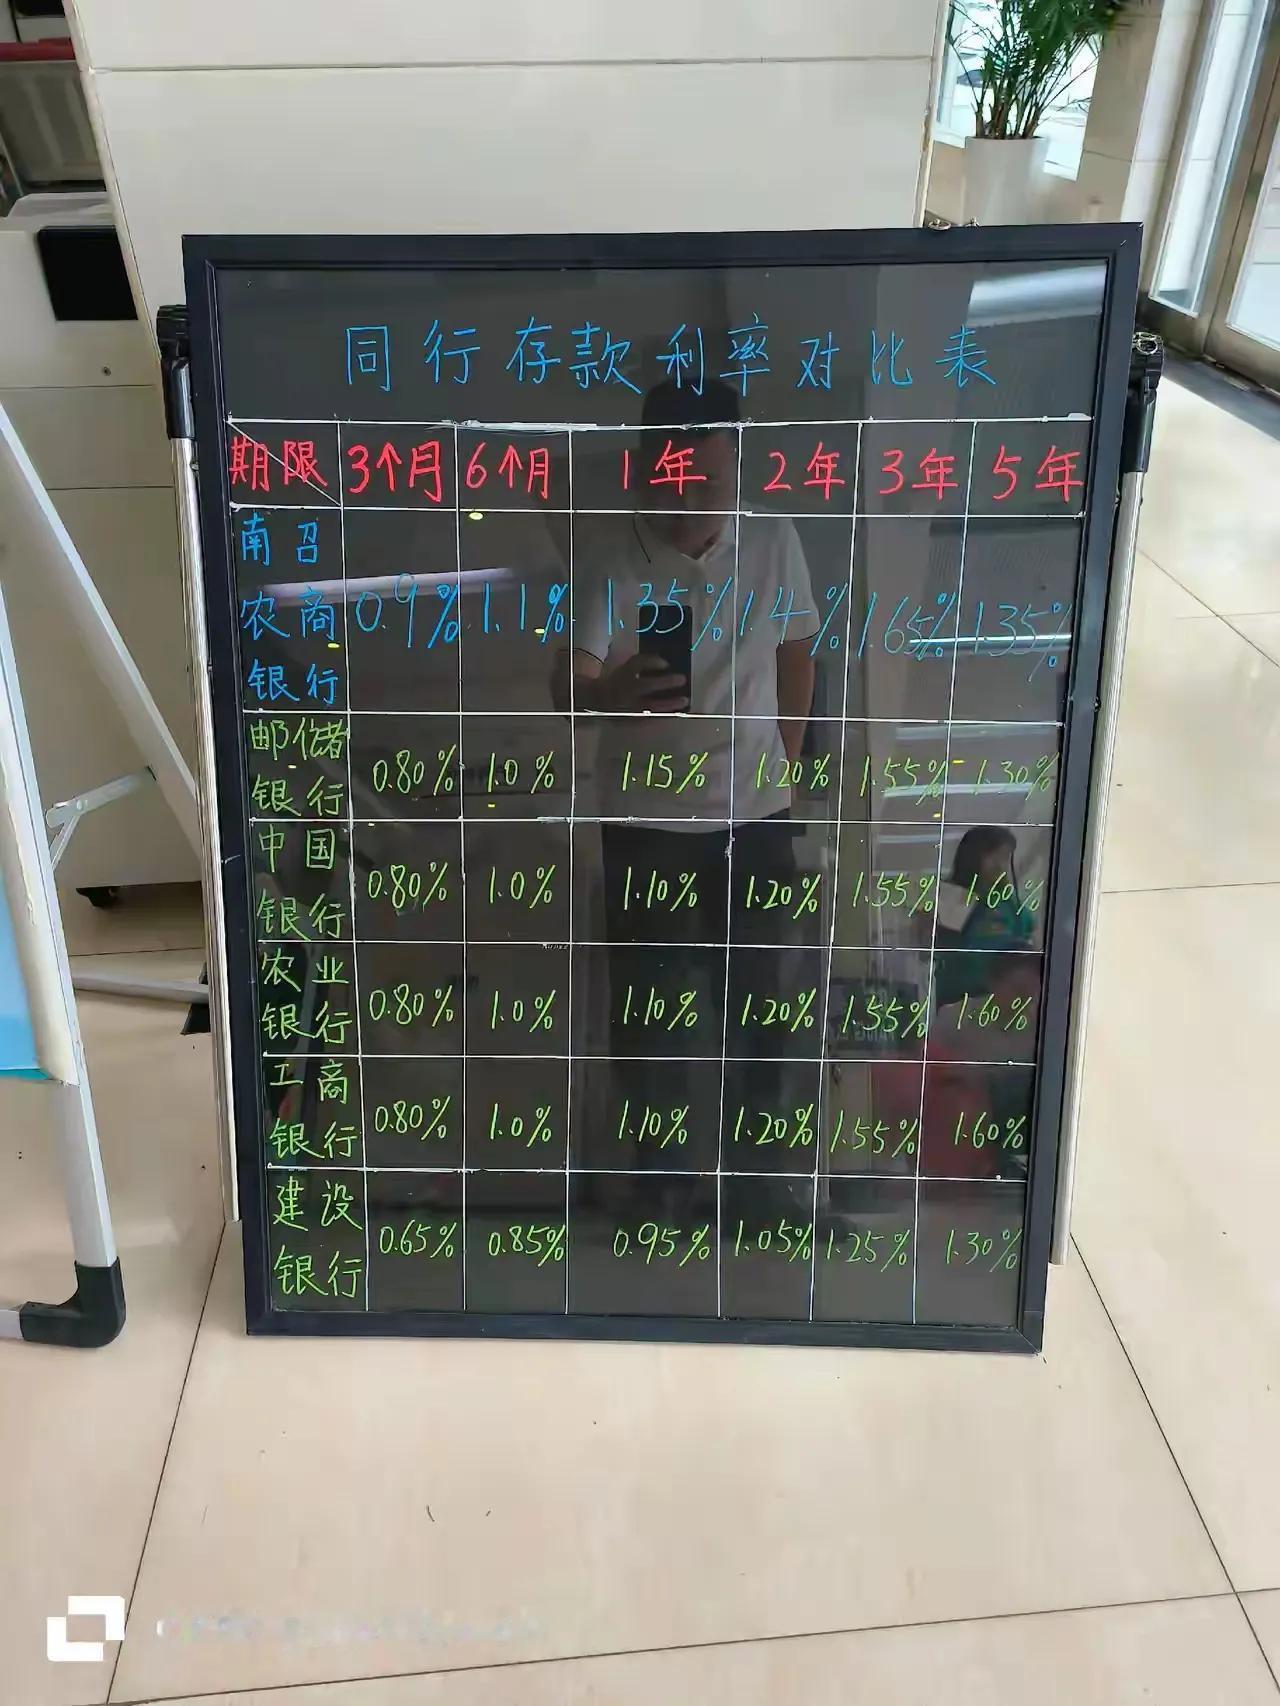 同行存款利率对比表
期限 3个月 6个月 1年 2年 3年 5年
南召农商银行 0.9% 1.1% 1.35% 1.4% 1.65% 1.35%
邮储银行 0.80% 1.0% 1.15% 1.20% 1.55% 1.30%
中国银行 0.80% 1.0% 1.10% 1.20% 1.55% 1.60%
农业银行 0.80% 1.0% 1.10% 1.20% 1.55% 1.60%
工商银行 0.80% 1.0% 1.10% 1.20% 1.55% 1.60%
建设银行 0.65% 0.85% 0.95% 1.05% 1.25% 1.30%